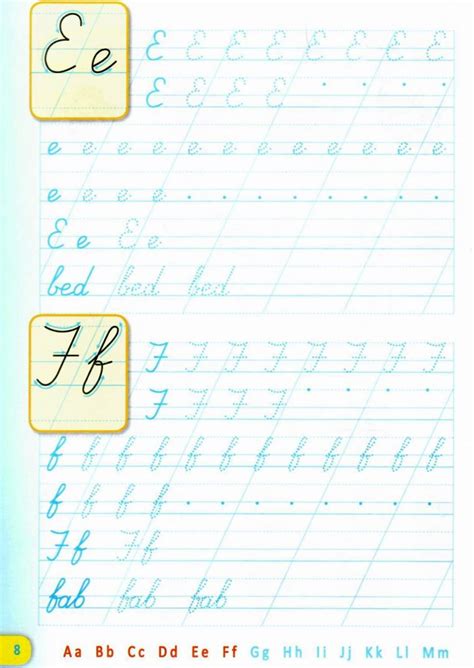 E e
E E E E E E E E
E E E E
e e e e e e e e e e e e
e e e e
E e E e
bed bed bed
F f
F F F F F F F F
F F F F
f f f f f f f f f f f f
f f f f
F f F f
fab fab fab
8 Aa Bb Cc Dd Ee Ff Gg Hh Ii Jj Kk Ll Mm